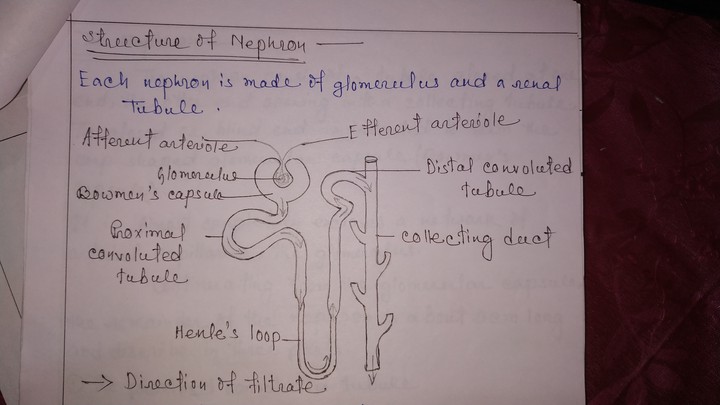 Structure of Nephron —
Each nephron is made of glomerulus and a renal
Tubule .
Afferent arteriole
Efferent arteriole
Glomerulus
Bowmen's capsule
Distal convoluted
tubule
Proximal
convoluted
tubule
collecting duct
Henle's loop
→ Direction of filtrate